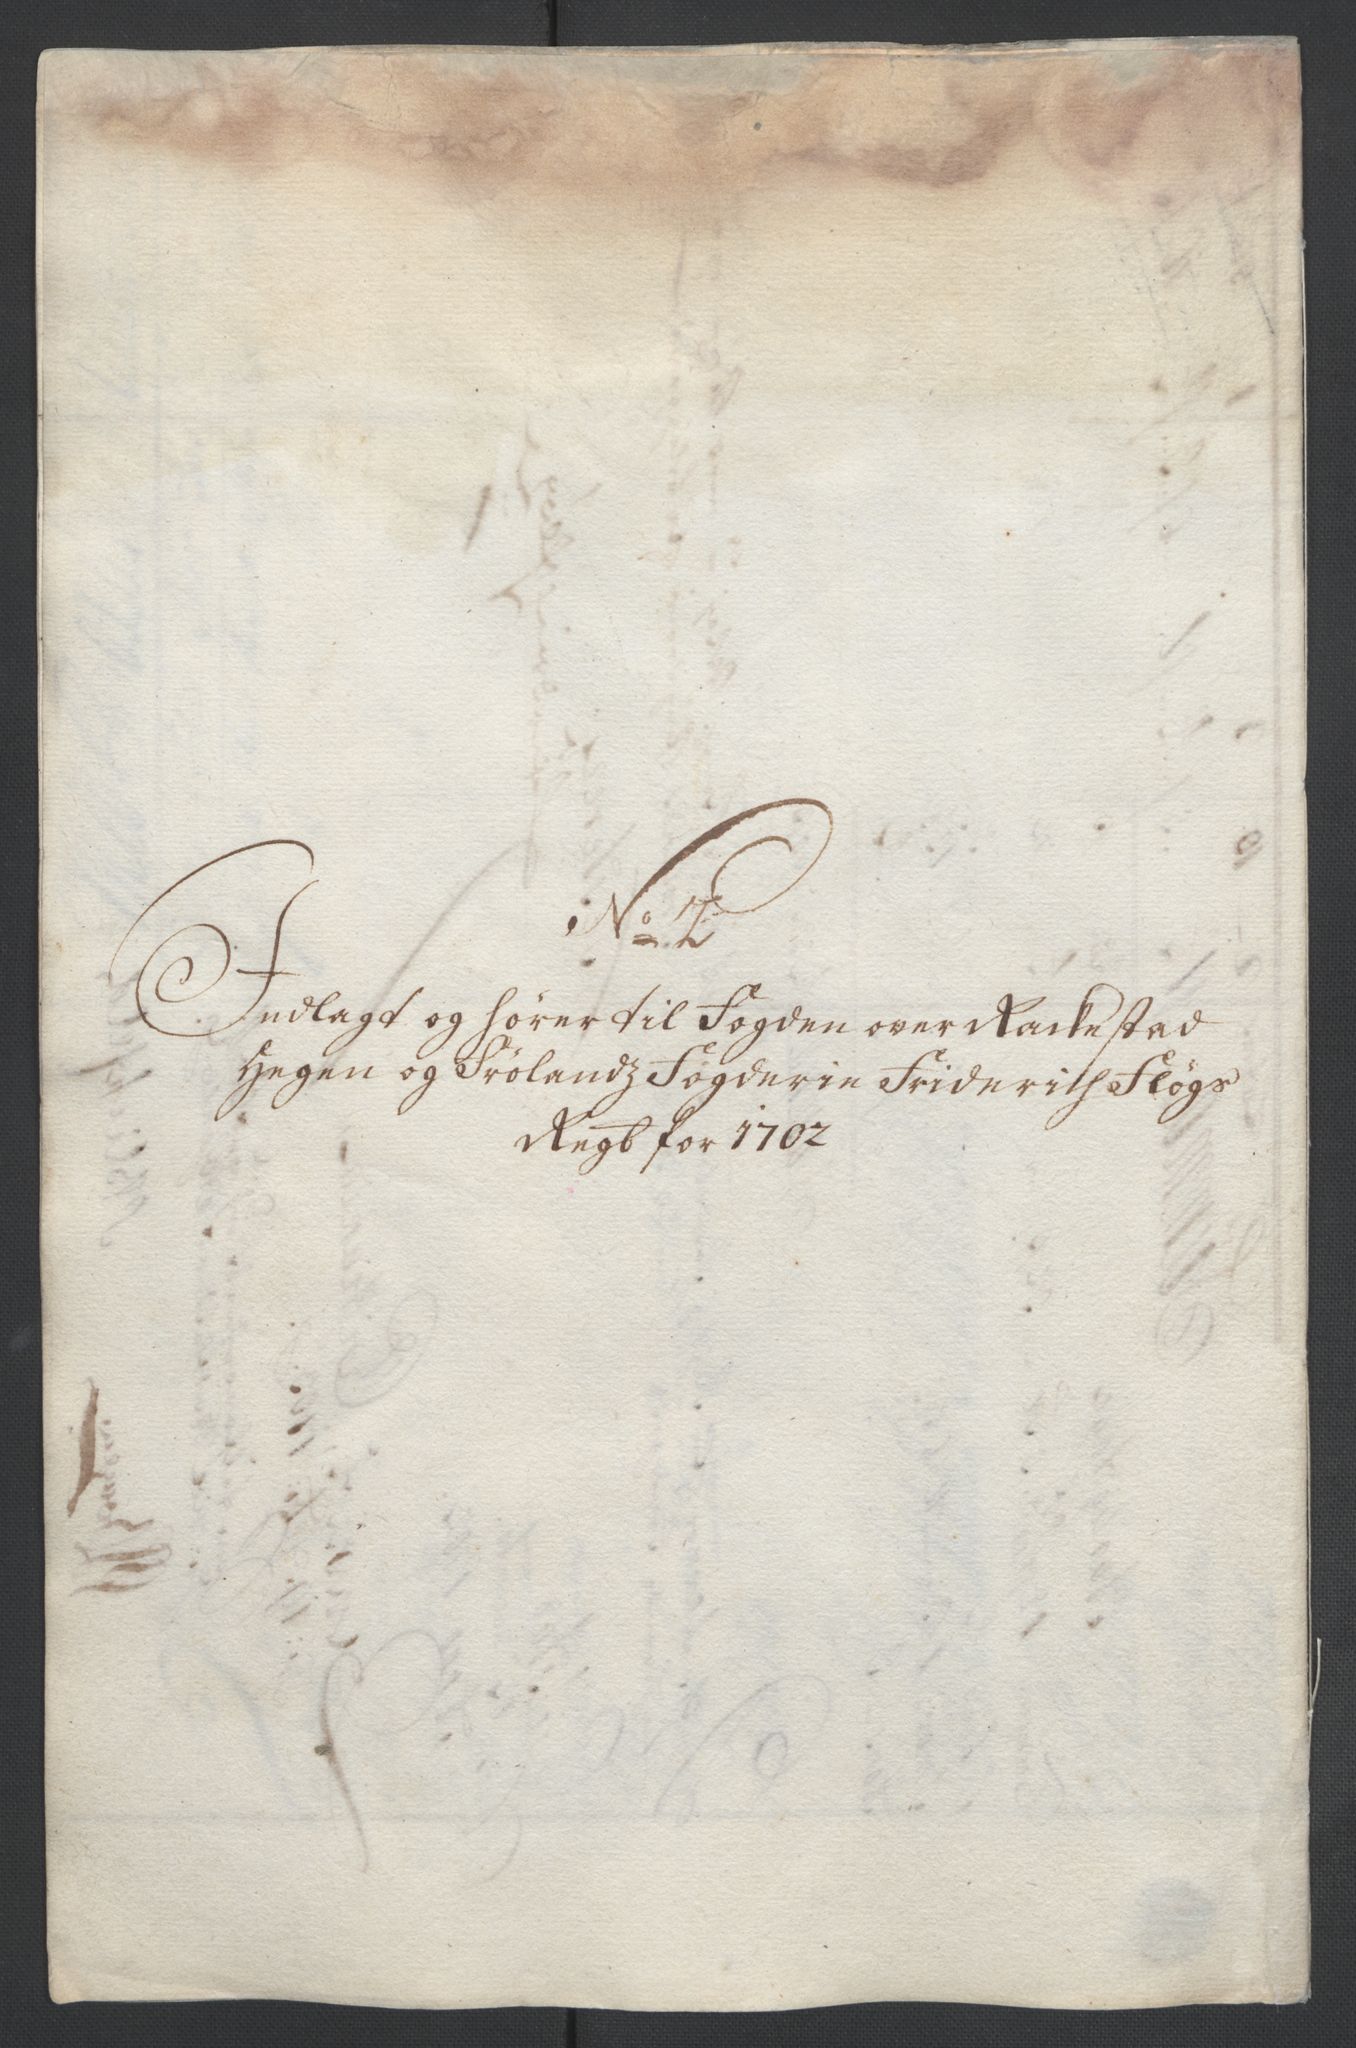 No 2
Indlagt og hører til Fogden over Rackestad
Hegen og Frølandz Fogderie Friderich Fløgs
Regb for 1702